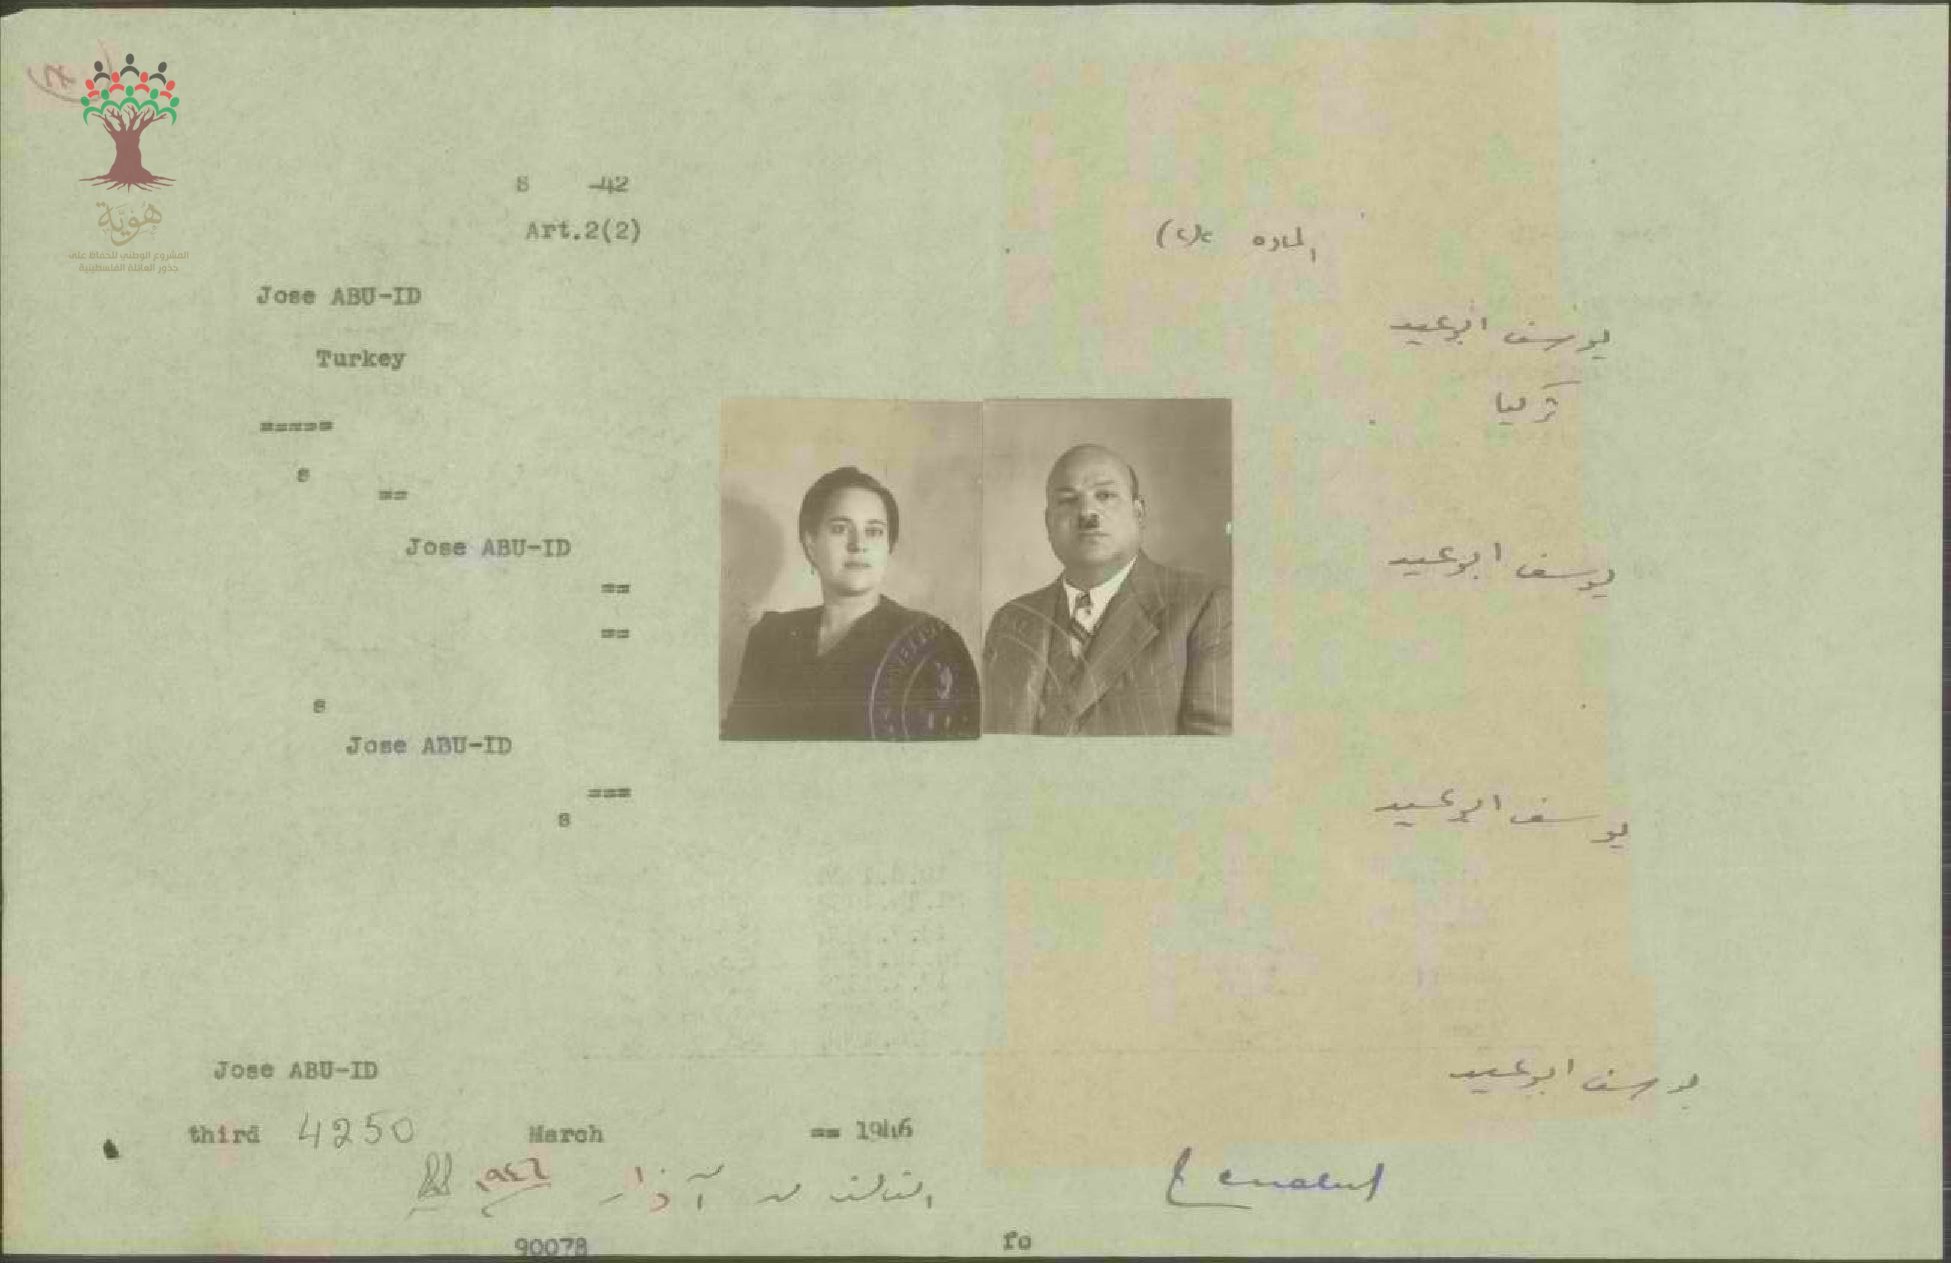 هُوِيَّة
المشروع الوطني للحفاظ على
جذور العائلة الفلسطينية
s -42
Art.2(2)
المادة ٢(٢)
Jose ABU-ID
يوسف ابوعيد
Turkey
تركيا
=====
s
==
Jose ABU-ID
يوسف ابوعيد
==
==
s
Jose ABU-ID
يوسف ابوعيد
===
s
Jose ABU-ID
يوسف ابوعيد
third 4250 March == 1946
الثالث من آذار ١٩٤٦
90078 fo